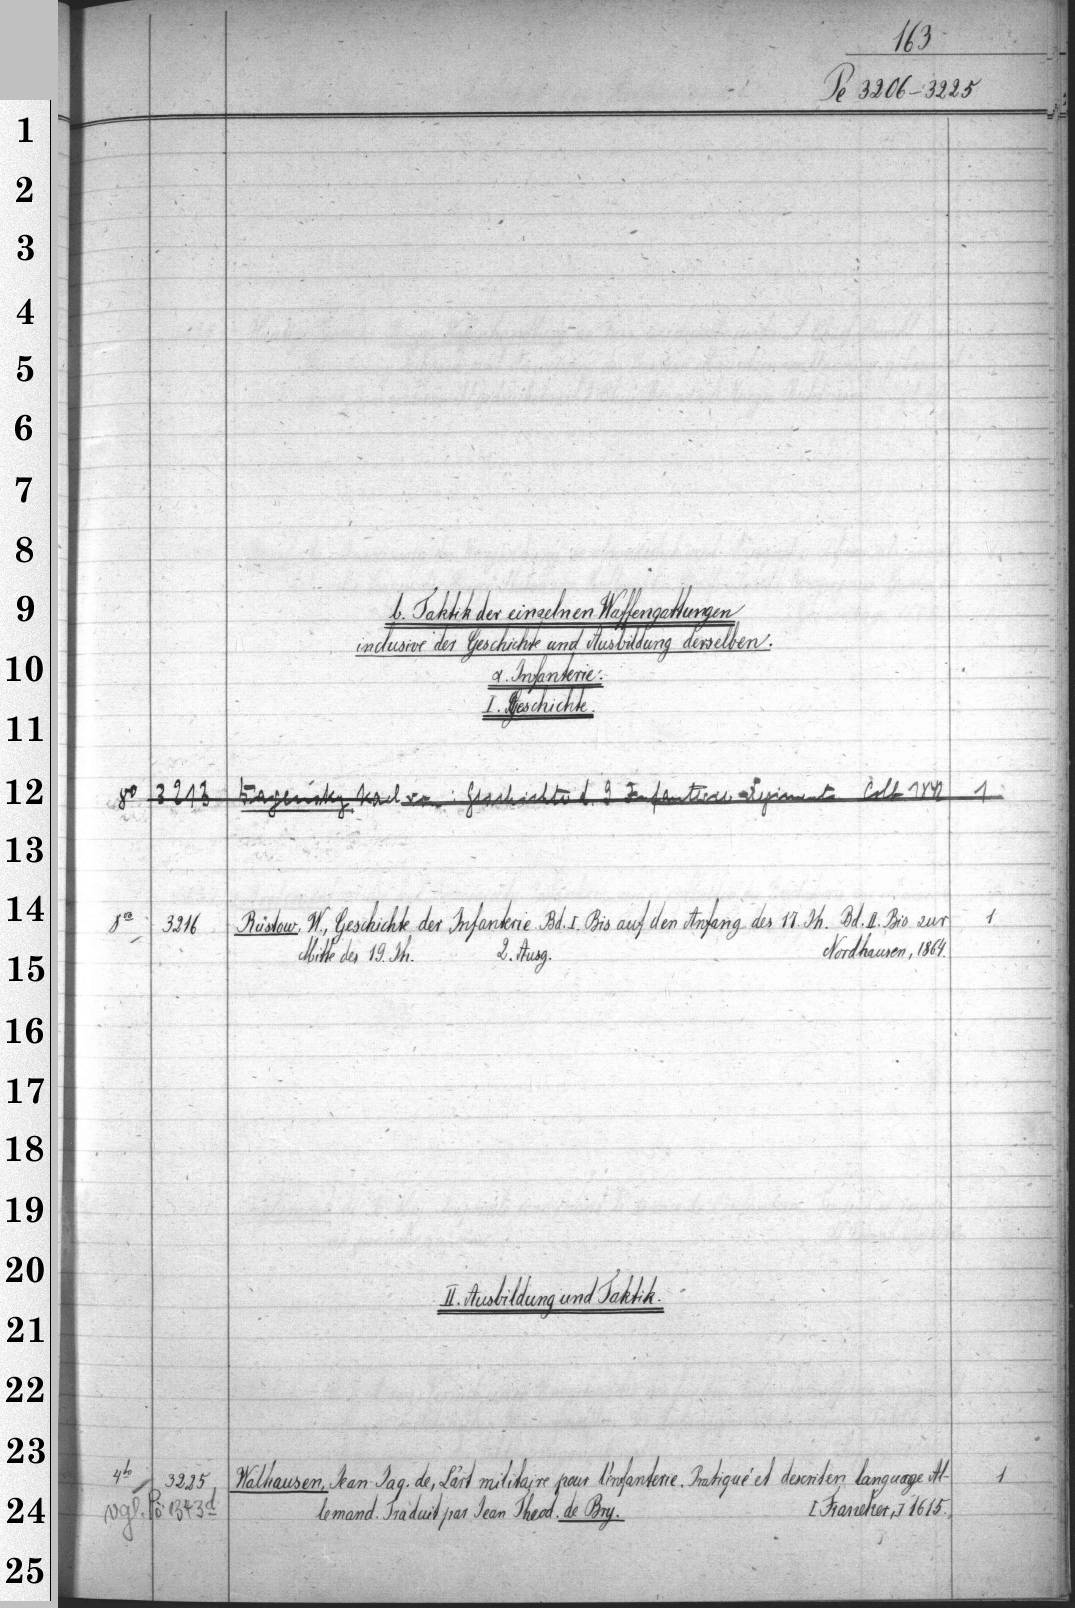 163
Pe 3206-3225
1
2
3
4
5
6
7
8
9
b. Taktik der einzelnen Waffengattungen
inclusive der Geschichte und Ausbildung derselben.
10
α. Infanterie.
I. Geschichte.
11
12 8° 3213 Karl Geschichte d. 9 Infanterie-Regiments Colb 1842 1
13
14 8vo 3216 Rüstow, W., Geschichte der Infanterie Bd. I. Bis auf den Anfang des 17. Jh. Bd. II. Bis zur 1
Mitte des 19. Jh. 2. Ausg. Nordhausen, 1864.
15
16
17
18
19
20
II. Ausbildung und Taktik.
21
22
23
4to 3225 Walhausen, Jean Jaq. de, L'art militaire pour l'infanterie. Pratiqué et descritén language Al- 1
24 vgl. Pö 1343d lemand. Traduit par Jean Theod. de Bry. [Franeker,] 1615.
25